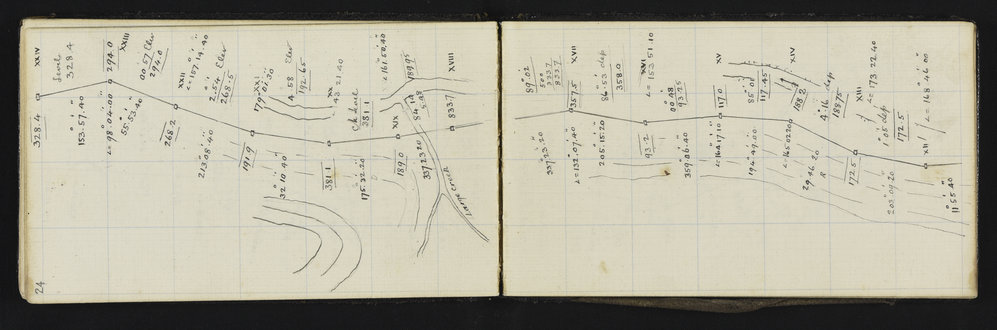 24
XXIV
328.4
Level
328.4
153.57.40
XXIII
294.0
∠ = 98.04.00
00.57 Elev
294.0
55.53.40
XXII
∠ = 157.14.40
2.54 Elev
268.5
268.2
213.08.40
XXI
179.01.30
4.58 Elev
192.65
191.9
32.10.40
XX
43.21.40
Ck Level
381.1
381.1
175.32.20
XIX
∠ 161.50.40
189.95
189.0
337.23.20
Large Creek
XVIII
833.7
89.02
500
333.7
833.7
337.23.20
XVII
357.5
∠ = 132.07.40
86.53 dep
358.0
205.15.20
XVI
∠ = 153.51.10
93.2
00.48
93.25
359.06.40
XV
117.0
∠ = 164.17.10
85.01
117.45
194.49.00
XIV
188.2
∠ = 165.02.20
4.16 dep
188.75
29.46.20
R
XIII
∠ = 173.22.40
172.5
1.05 dep
172.5
203.09.20
XII
∠ = 168.46.00
11.55.40